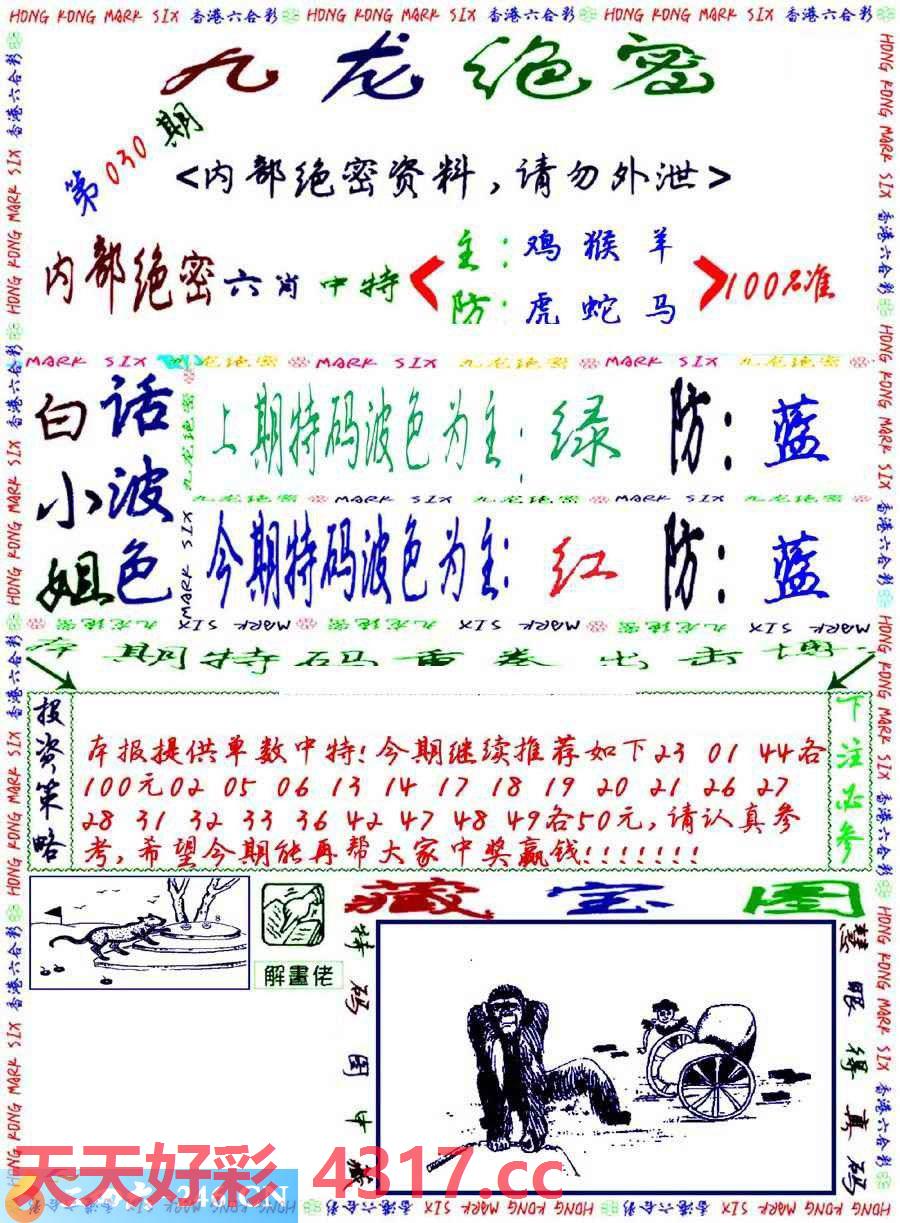 HONG KONG MARK SIX 香港六合彩 HONG KONG MARK SIX 香港六合彩 HONG KONG MARK SIX 香港六合彩
九龙绝密
第030期
<内部绝密资料,请勿外泄>
内部绝密六肖中特
主:鸡猴羊
防:虎蛇马
100%准
MARK SIX 九龙绝密 MARK SIX 九龙绝密 MARK SIX 九龙绝密
白话
小波
姐色
上期特码波色为主:绿 防:蓝
九龙绝密 MARK SIX 九龙绝密 MARK SIX 九龙绝密
今期特码波色为主:红 防:蓝
MARK SIX 九龙绝密 MARK SIX 九龙绝密 MARK SIX
本期特码重拳出击
投资策略
本报提供单数中特!今期继续推荐如下23 01 44各
100元02 05 06 13 14 17 18 19 20 21 26 27
28 31 32 33 36 42 47 48 49各50元,请认真参
考,希望今期能再帮大家中奖赢钱!!!!!!!
下注必参
8
解畫佬
藏宝图
特码图中
慧眼得真码
天天好彩 4317.cc
246.CN